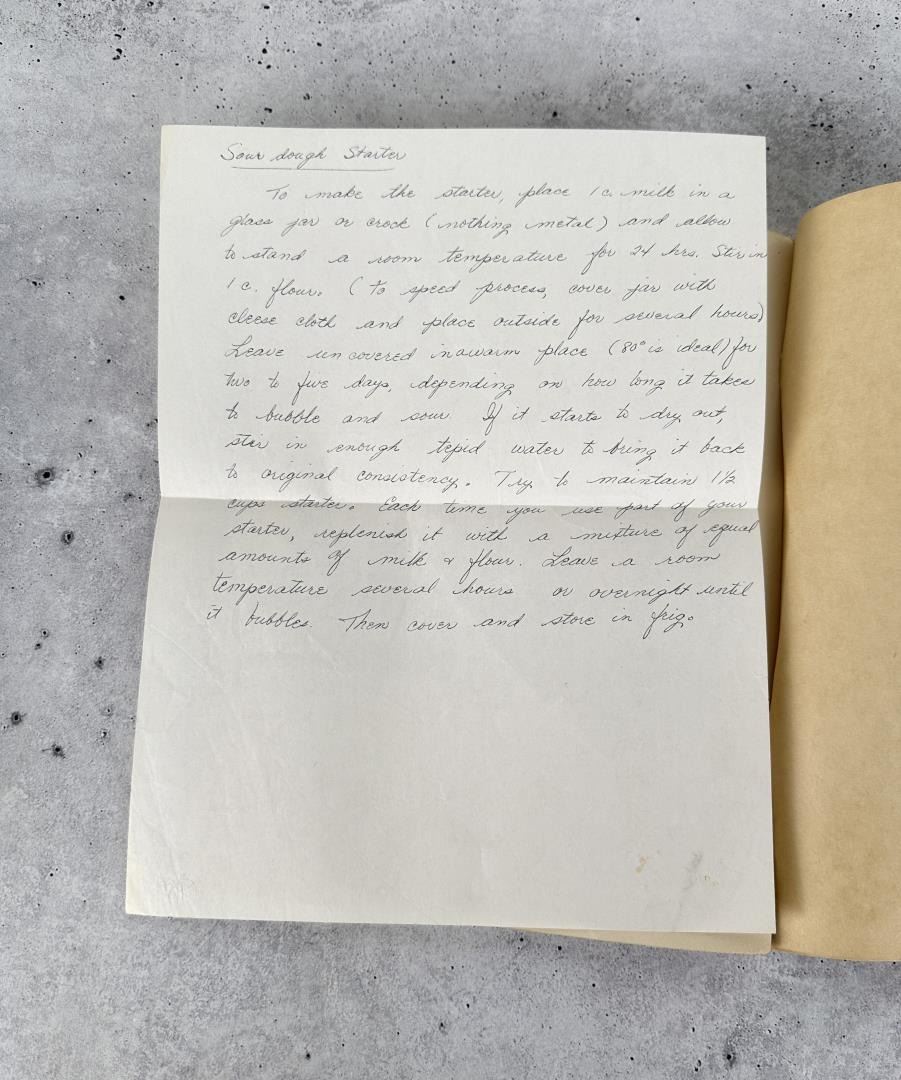 Sour dough Starter
To make the starter, place 1 c. milk in a
glass jar or crock (nothing metal) and allow
to stand a room temperature for 24 hrs. Stir in
1 c. flour. (To speed process, cover jar with
cleese cloth and place outside for several hours)
Leave uncovered in a warm place (80° is ideal) for
two to five days, depending on how long it takes
to bubble and sour. If it starts to dry out,
stir in enough tepid water to bring it back
to original consistency. Try to maintain 1½
cups starter. Each time you use part of your
starter, replenish it with a mixture of equal
amounts of milk & flour. Leave a room
temperature several hours or overnight until
it bubbles. Then cover and store in frig.